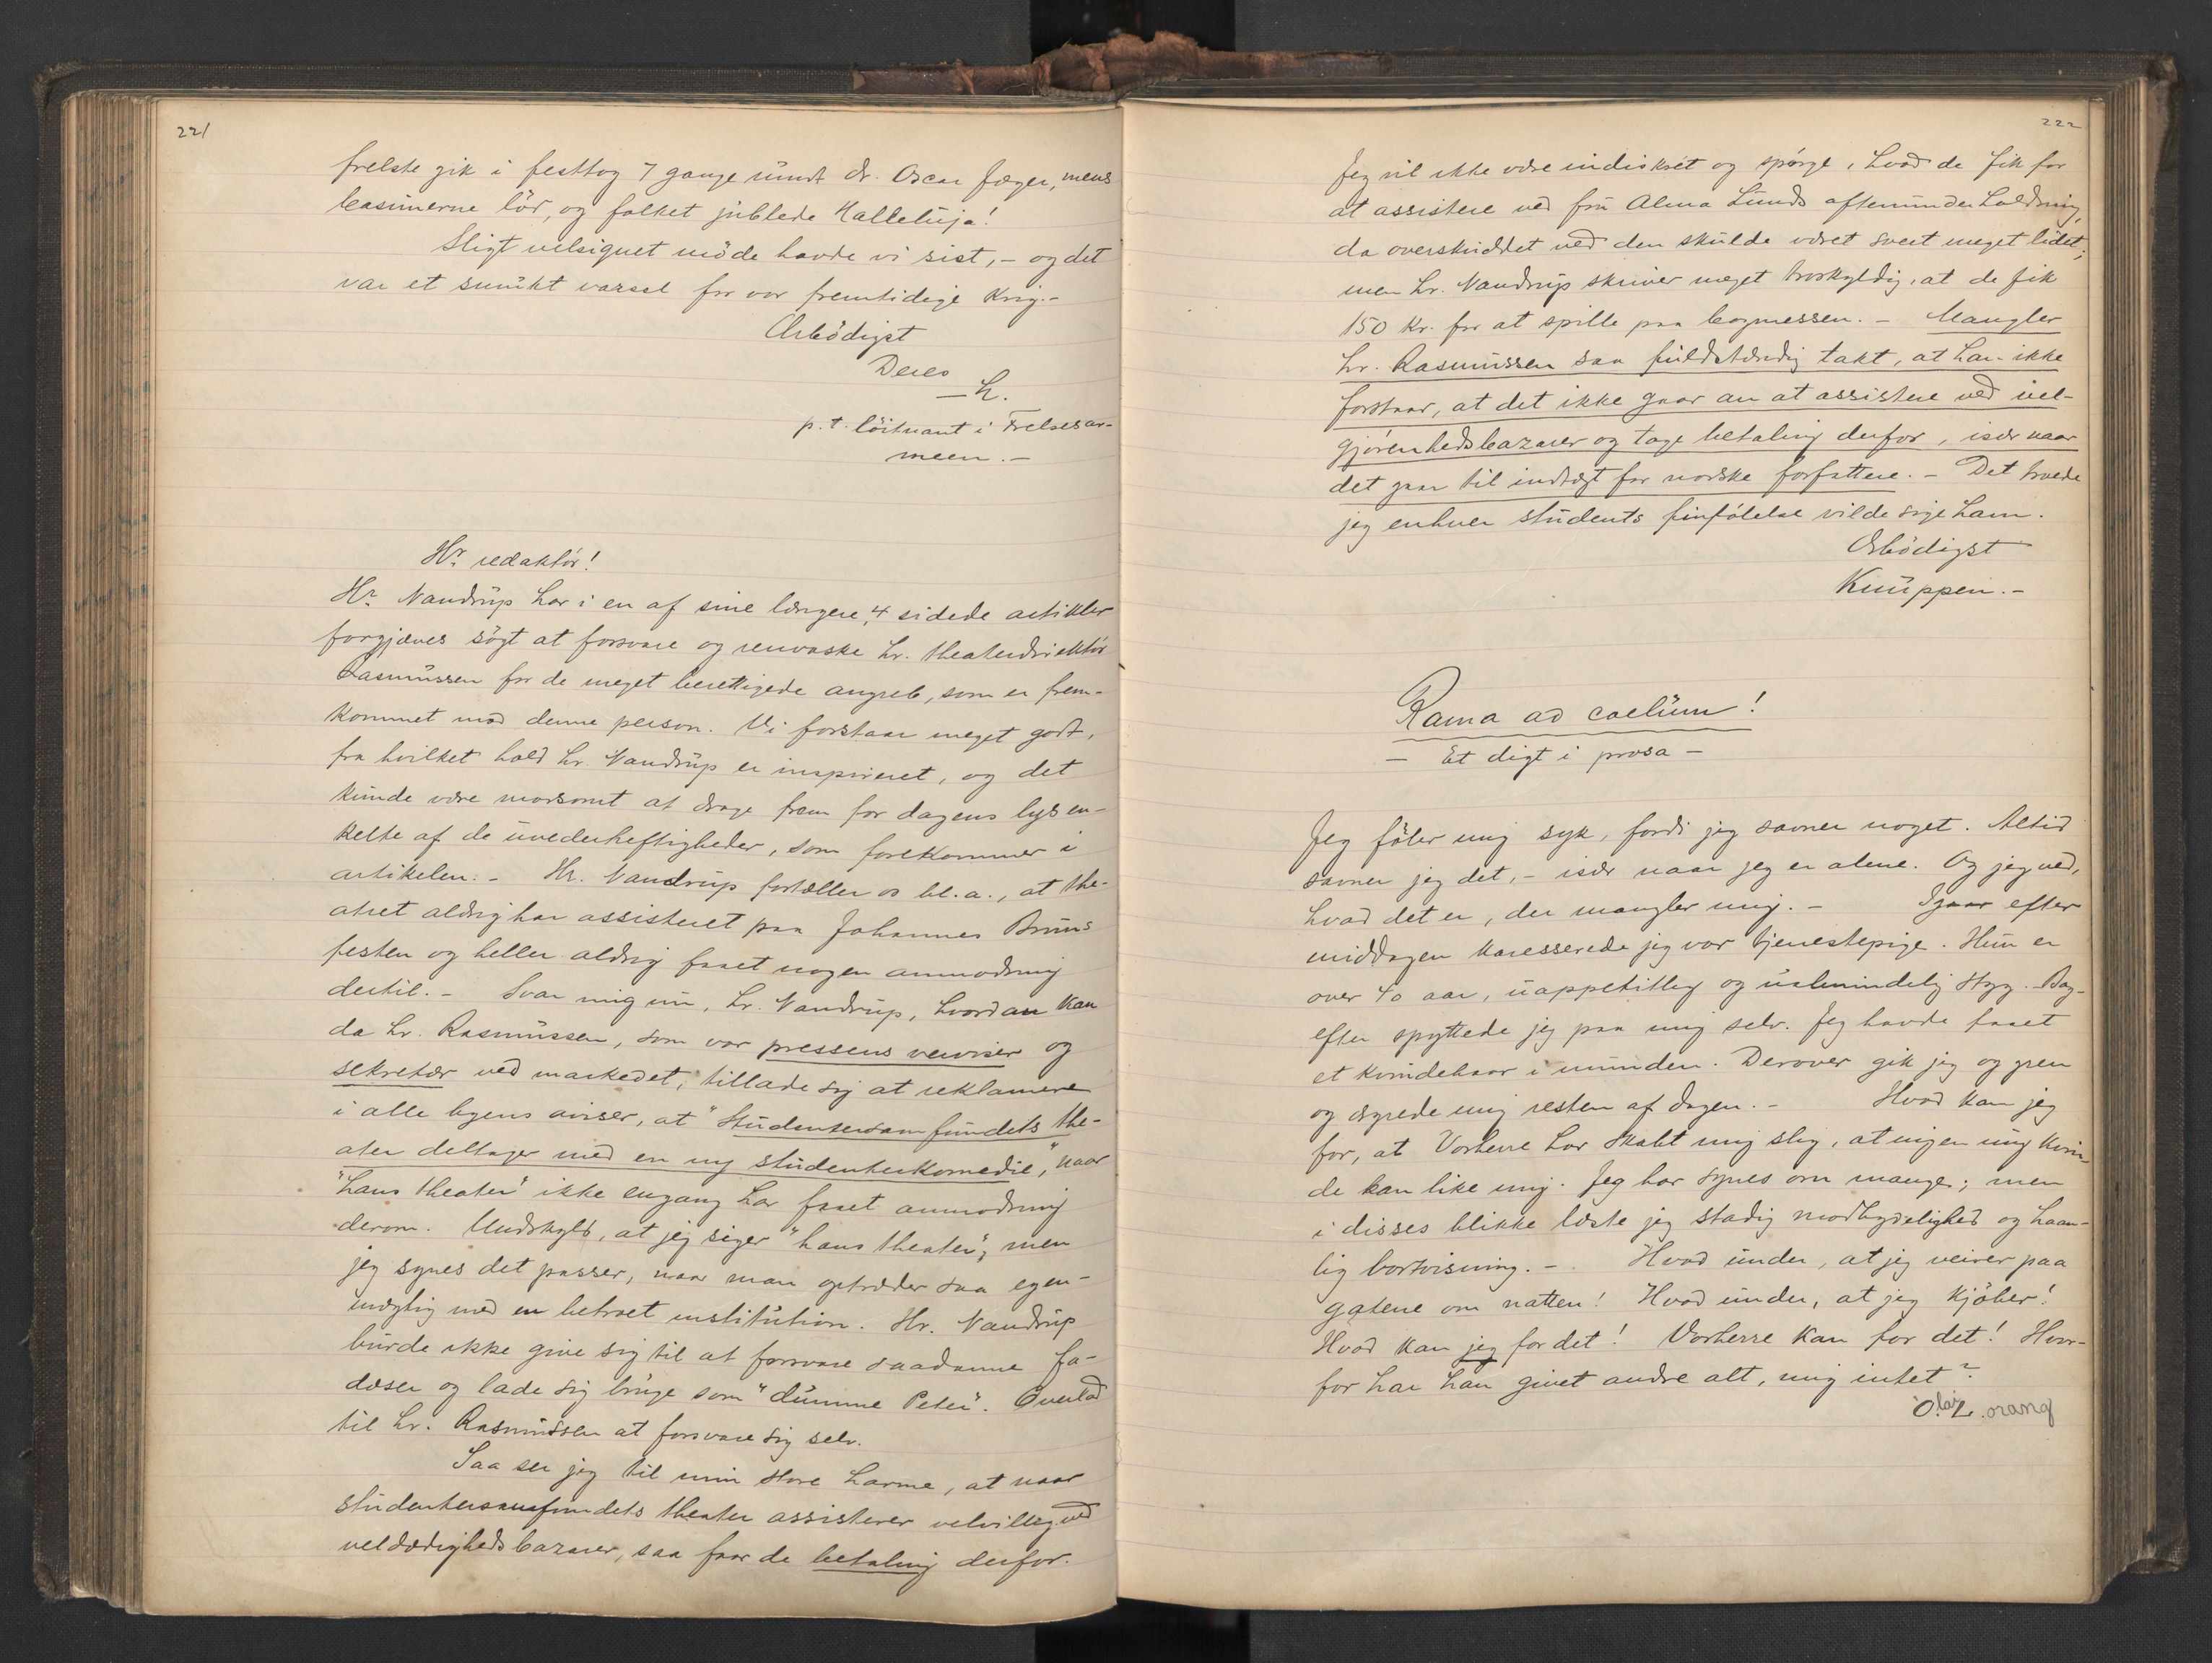 221
frelste gik i festtog 7 gange rundt dr. Oscar Jæger, mens
basunerne lød, og folket jublede Halleluja!
Sligt velsignet møde havde vi sist, – og det
var et smukt varsel for vor fremtidige krig. –
Ærbødigst
Deres
– h.
p. t. løitnant i Frelsesar-
meen. –
Hr. redaktör!
Hr. Nandrup har i en af sine længere, 4 sidede artikler
forgjæves søgt at forsvare og renvaske hr. theaterdirektör
Rasmussen for de meget berettigede angreb, som er frem-
kommet mod denne person. Vi forstaar meget godt,
fra hvilket hold hr. Nandrup er inspireret, og det
kunde være morsomt at drage frem for dagens lys en-
kelte af de uvederheftigheder, som forekommer i
artikelen. – Hr. Nandrup fortæller os bl. a., at the-
atret aldrig har assisteret paa Johannes Bruns
festen og heller aldrig faaet nogen anmodning
dertil. – Svar mig nu, hr. Nandrup, hvordan kan
da hr. Rasmussen, som var pressens veiviser og
sekretær ved markedet, tillade sig at reklamere
i alle byens aviser, at "Studentersamfundets the-
ater deltager med en ny studenterkomedie," naar
"hans theater" ikke engang har faaet anmodning
derom. Undskyld, at jeg siger "hans theater"; men
jeg synes det passer, naar man optræder saa egen-
mægtig med en betroet institution. Hr. Nandrup
burde ikke give sig til at forsvare saadanne fa-
dæser og lade sig bruge som "dumme Peter". Overlad
til hr. Rasmussen at forsvare sig selv.
Saa ser jeg til min store harme, at naar
studentersamfundets theater assisterer velvilligst ved
veldædighedsbazarer, saa faar de betaling derfor.
222
Jeg vil ikke være indiskret og spørge, hvad de fik for
at assistere ved fru Alma Lunds aftenunderholdning,
da overskuddet ved den skulde været svert meget lidet;
men hr. Nandrup skriver meget troskyldig, at de fik
150 kr. for at spille paa bogmessen. – Mangler
hr. Rasmussen saa fuldstændig takt, at han ikke
forstaar, at det ikke gaar an at assistere ved vel-
gjørenhedsbazarer og tage betaling derfor, især naar
det gaar til indtægt for norske forfattere. – Det troede
jeg enhver students finfølelse vilde sige ham.
Ærbødigst
Knuppen. –
Rama ad coelum!
– Et digt i prosa –
Jeg føler mig syk, fordi jeg savner noget. Altid
savner jeg det, – især naar jeg er alene. Og jeg ved,
hvad det er, der mangler mig. – Igaar efter
middagen karesserede jeg vor tjenestepige. Hun er
over 40 aar, uappetitlig og ualmindelig styg. Bag-
efter spyttede jeg paa mig selv. Jeg havde faaet
et kvindehaar i munden. Derover gik jeg og gren
og ægrede mig resten af dagen. – Hvad kan jeg
for, at Vorherre har skabt mig slig, at ingen ung kvin-
de kan like mig. Jeg har synes om mange; men
i disses blikke læste jeg stadig modbydelighed og haan-
lig bortvisning. – Hvad under, at jeg veirer paa
gatene om natten! Hvad under, at jeg kjøber!
Hvad kan jeg for det! Vorherre kan for det! Hvor-
for har han givet andre alt, mig intet?
Olaf L.orang